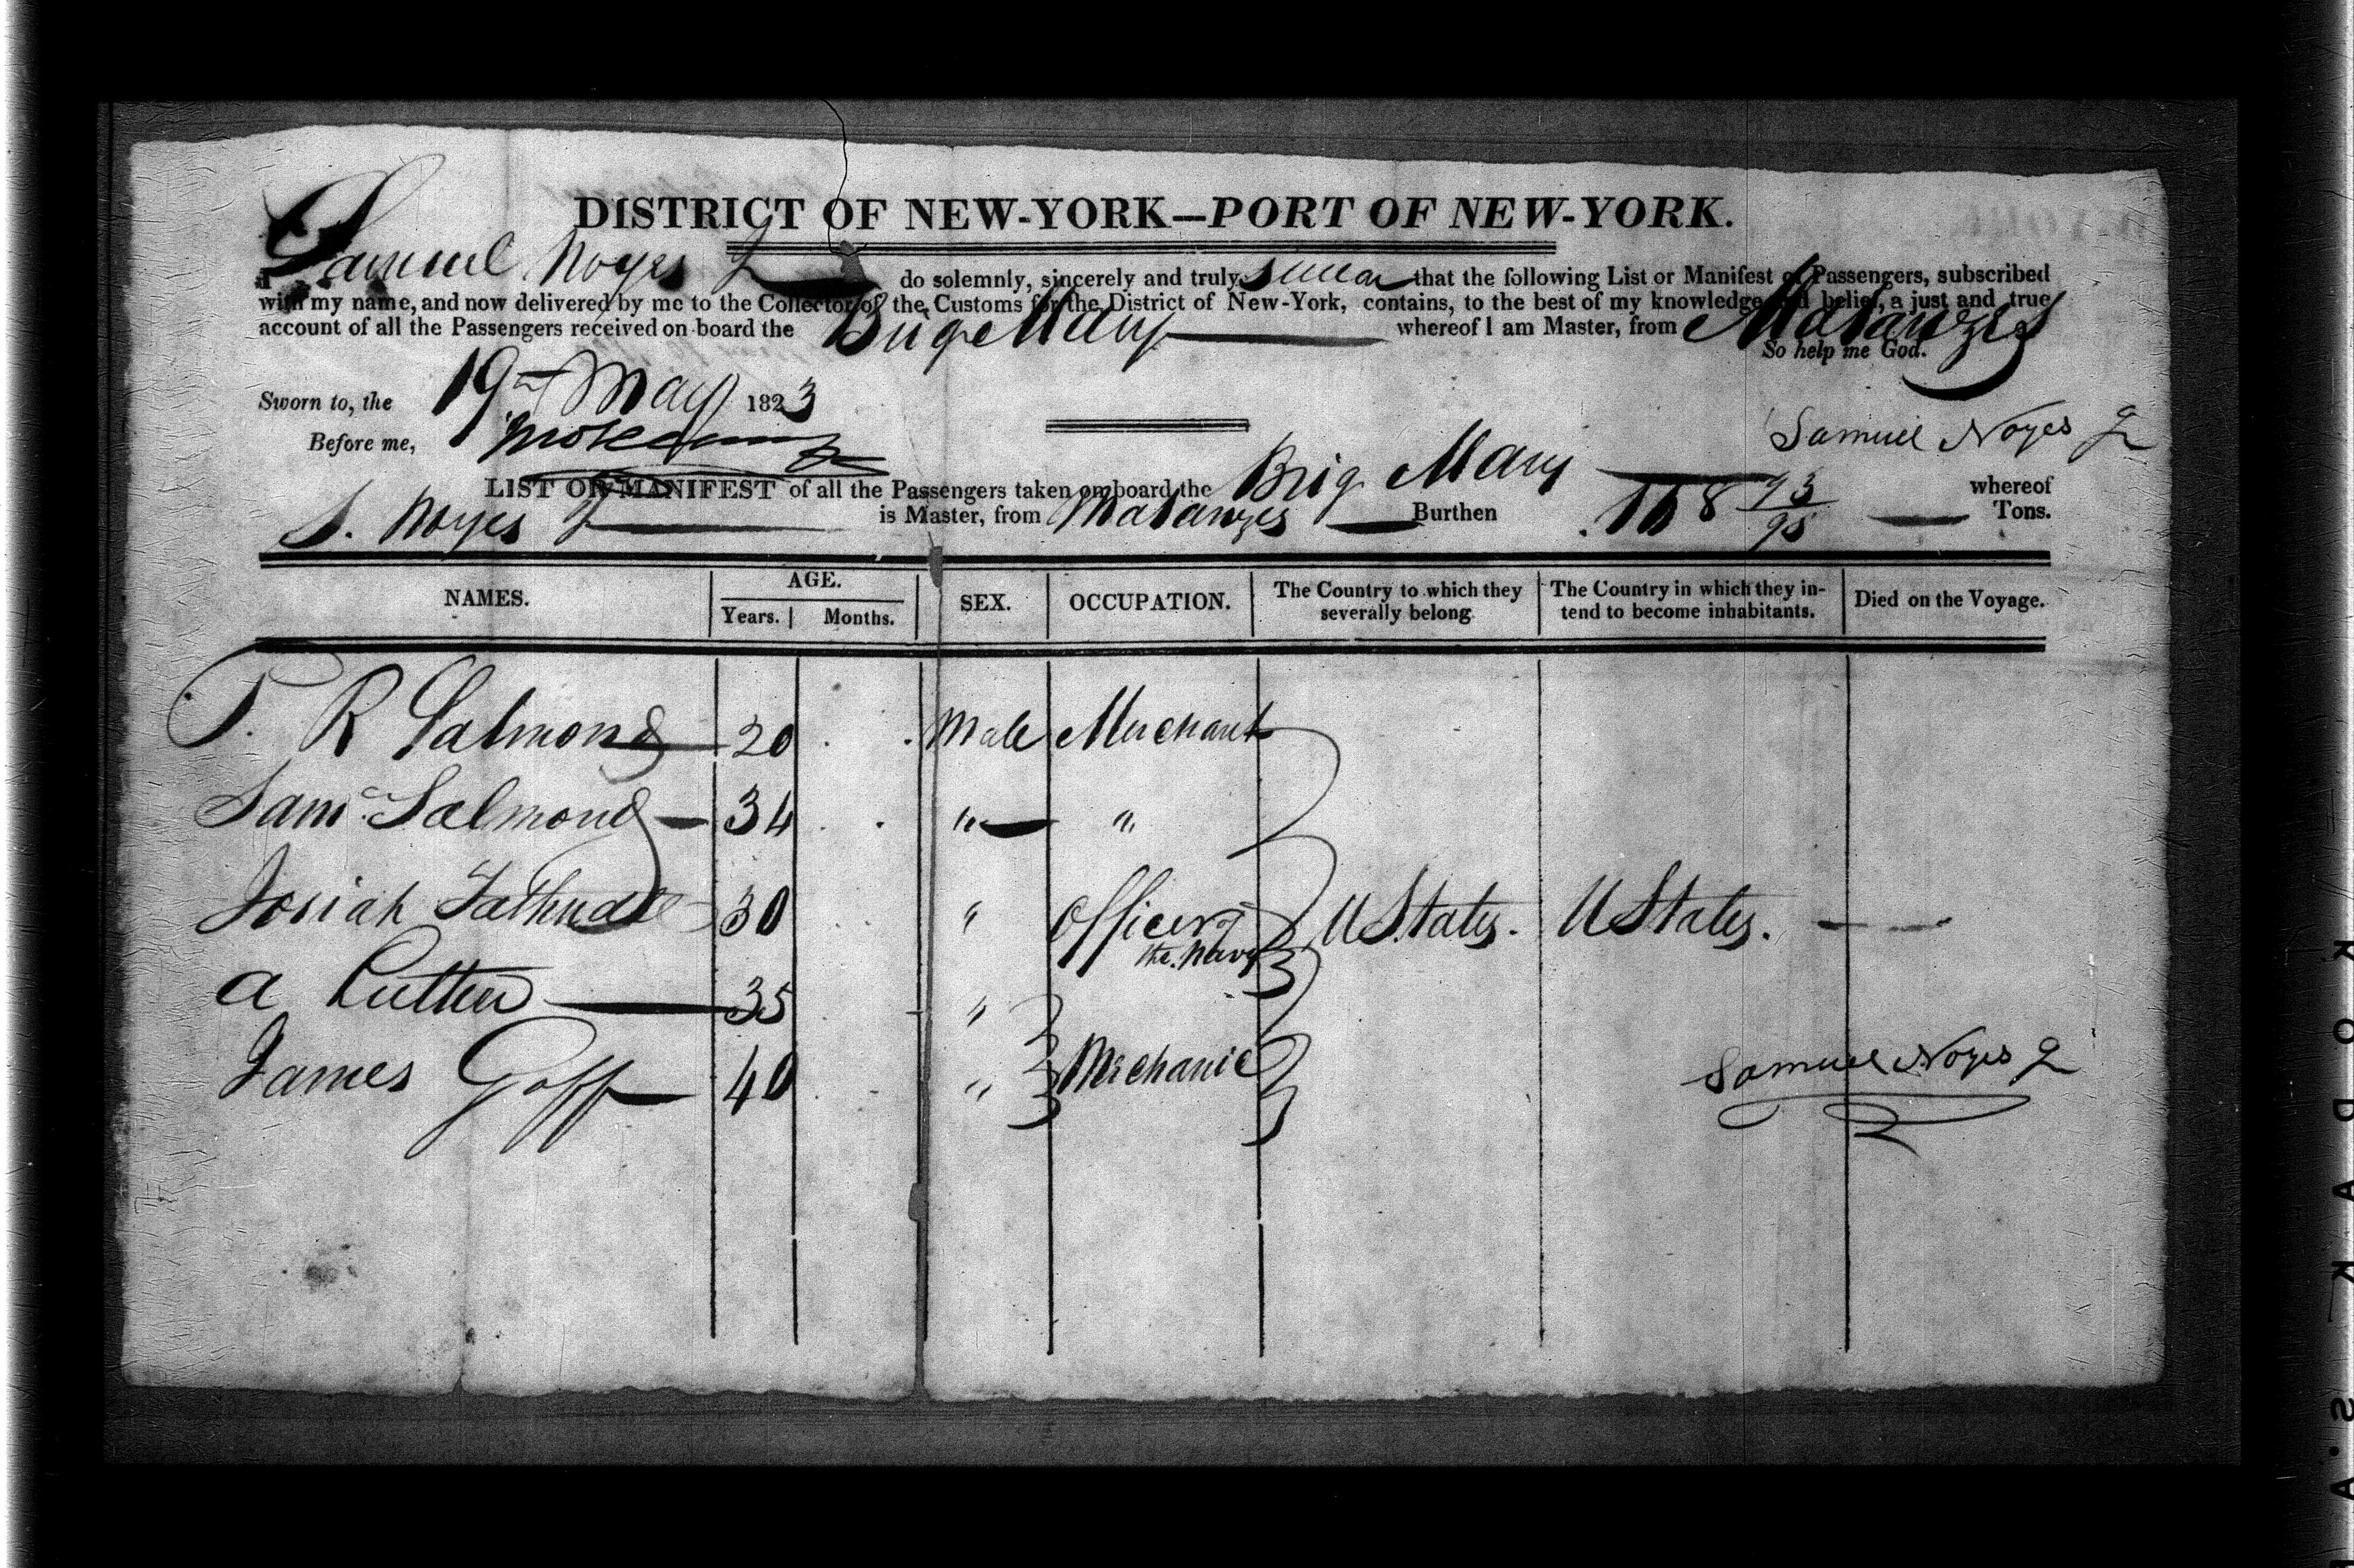 DISTRICT OF NEW-YORK—PORT OF NEW-YORK.
I Samuel Noyes Jr do solemnly, sincerely and truly swear that the following List or Manifest of Passengers, subscribed
with my name, and now delivered by me to the Collector of the Customs for the District of New-York, contains, to the best of my knowledge and belief, a just and true
account of all the Passengers received on board the Brig Mary whereof I am Master, from Matanzes
So help me God.
Sworn to, the 19th May 1823
Before me,
Samuel Noyes Jr
LIST OR MANIFEST of all the Passengers taken on board the Brig Mary whereof
S. Noyes Jr is Master, from Matanzes Burthen 168 93/95 Tons.
NAMES. AGE. Years. Months. SEX. OCCUPATION. The Country to which they severally belong The Country in which they intend to become inhabitants. Died on the Voyage.
T. R Salmond 20 Male Merchant
Saml Salmond 34 " "
Josiah 30 " Officer of the Navy U States. U States. —
A 35 "
James Goff 40 " Mechanic
Samuel Noyes Jr
KODAK